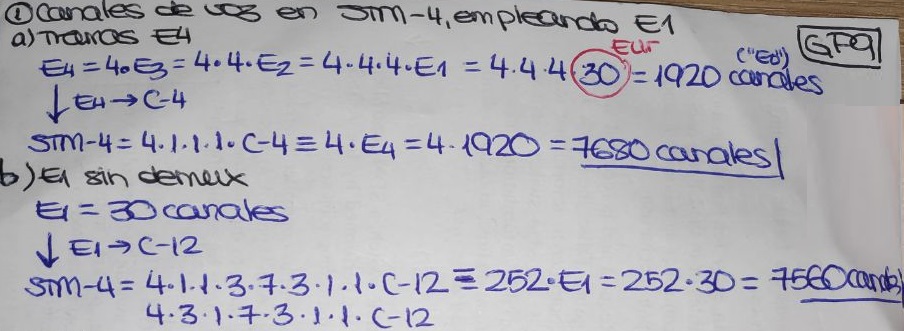 ① Canales de voz en STM-4, empleando E1
a) Tramas E4
EUr
("E0")
GF9
E4 = 4·E3 = 4·4·E2 = 4·4·4·E1 = 4·4·4·30 = 1920 canales
↓ E4 → C-4
STM-4 = 4·1·1·1·C-4 ≡ 4·E4 = 4·1920 = 7680 canales
b) E1 sin demux
E1 = 30 canales
↓ E1 → C-12
STM-4 = 4·1·1·3·7·3·1·1·C-12 ≡ 252·E1 = 252·30 = 7560 canales
4·3·1·7·3·1·1·C-12